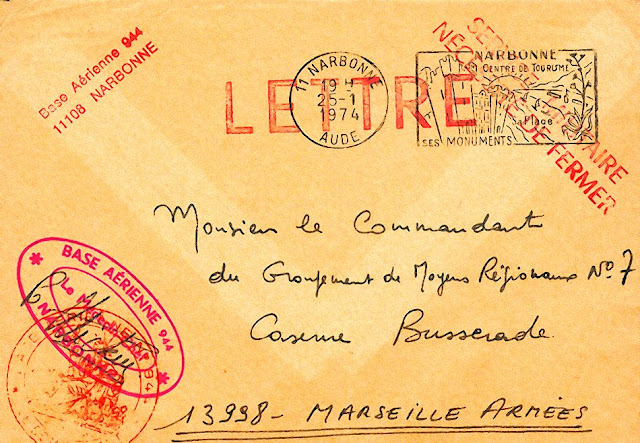 Base Aérienne 944
11108 NARBONNE
LETTRE
11 NARBONNE
19 H
25-1
1974
AUDE
NARBONNE
CENTRE DE TOURISME
Sa Plage
SES MONUMENTS
NECESSITE DE FERMER
Monsieur le Commandant
du Groupement de Moyens Régionaux No 7
Caserne Busserade
13998 - MARSEILLE ARMÉES
* BASE AÉRIENNE 944 *
NARBONNE